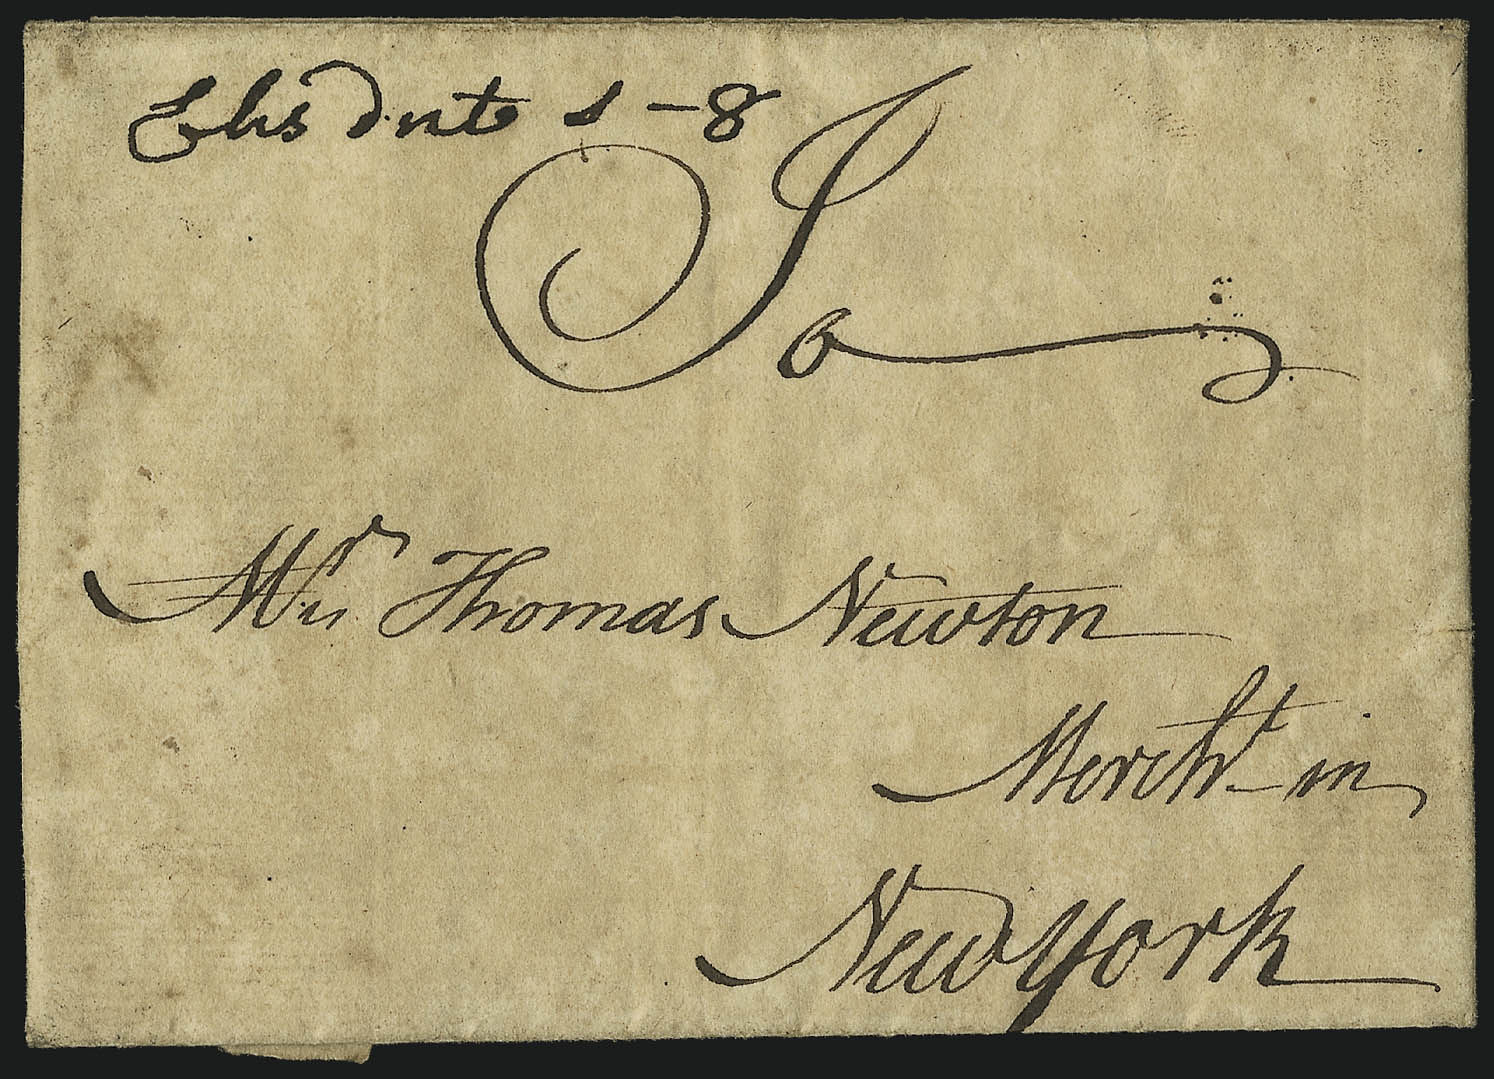 dwt 1-8
To
Mr Thomas Newton
Mercht in
New York